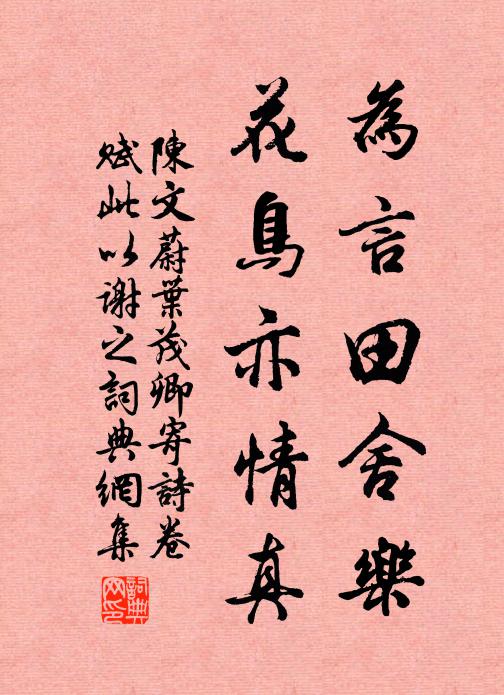 為言田舍樂
花鳥亦情真
陳文蔚葉茂卿寄詩卷
賦此以謝之詞典網集
詞典網印